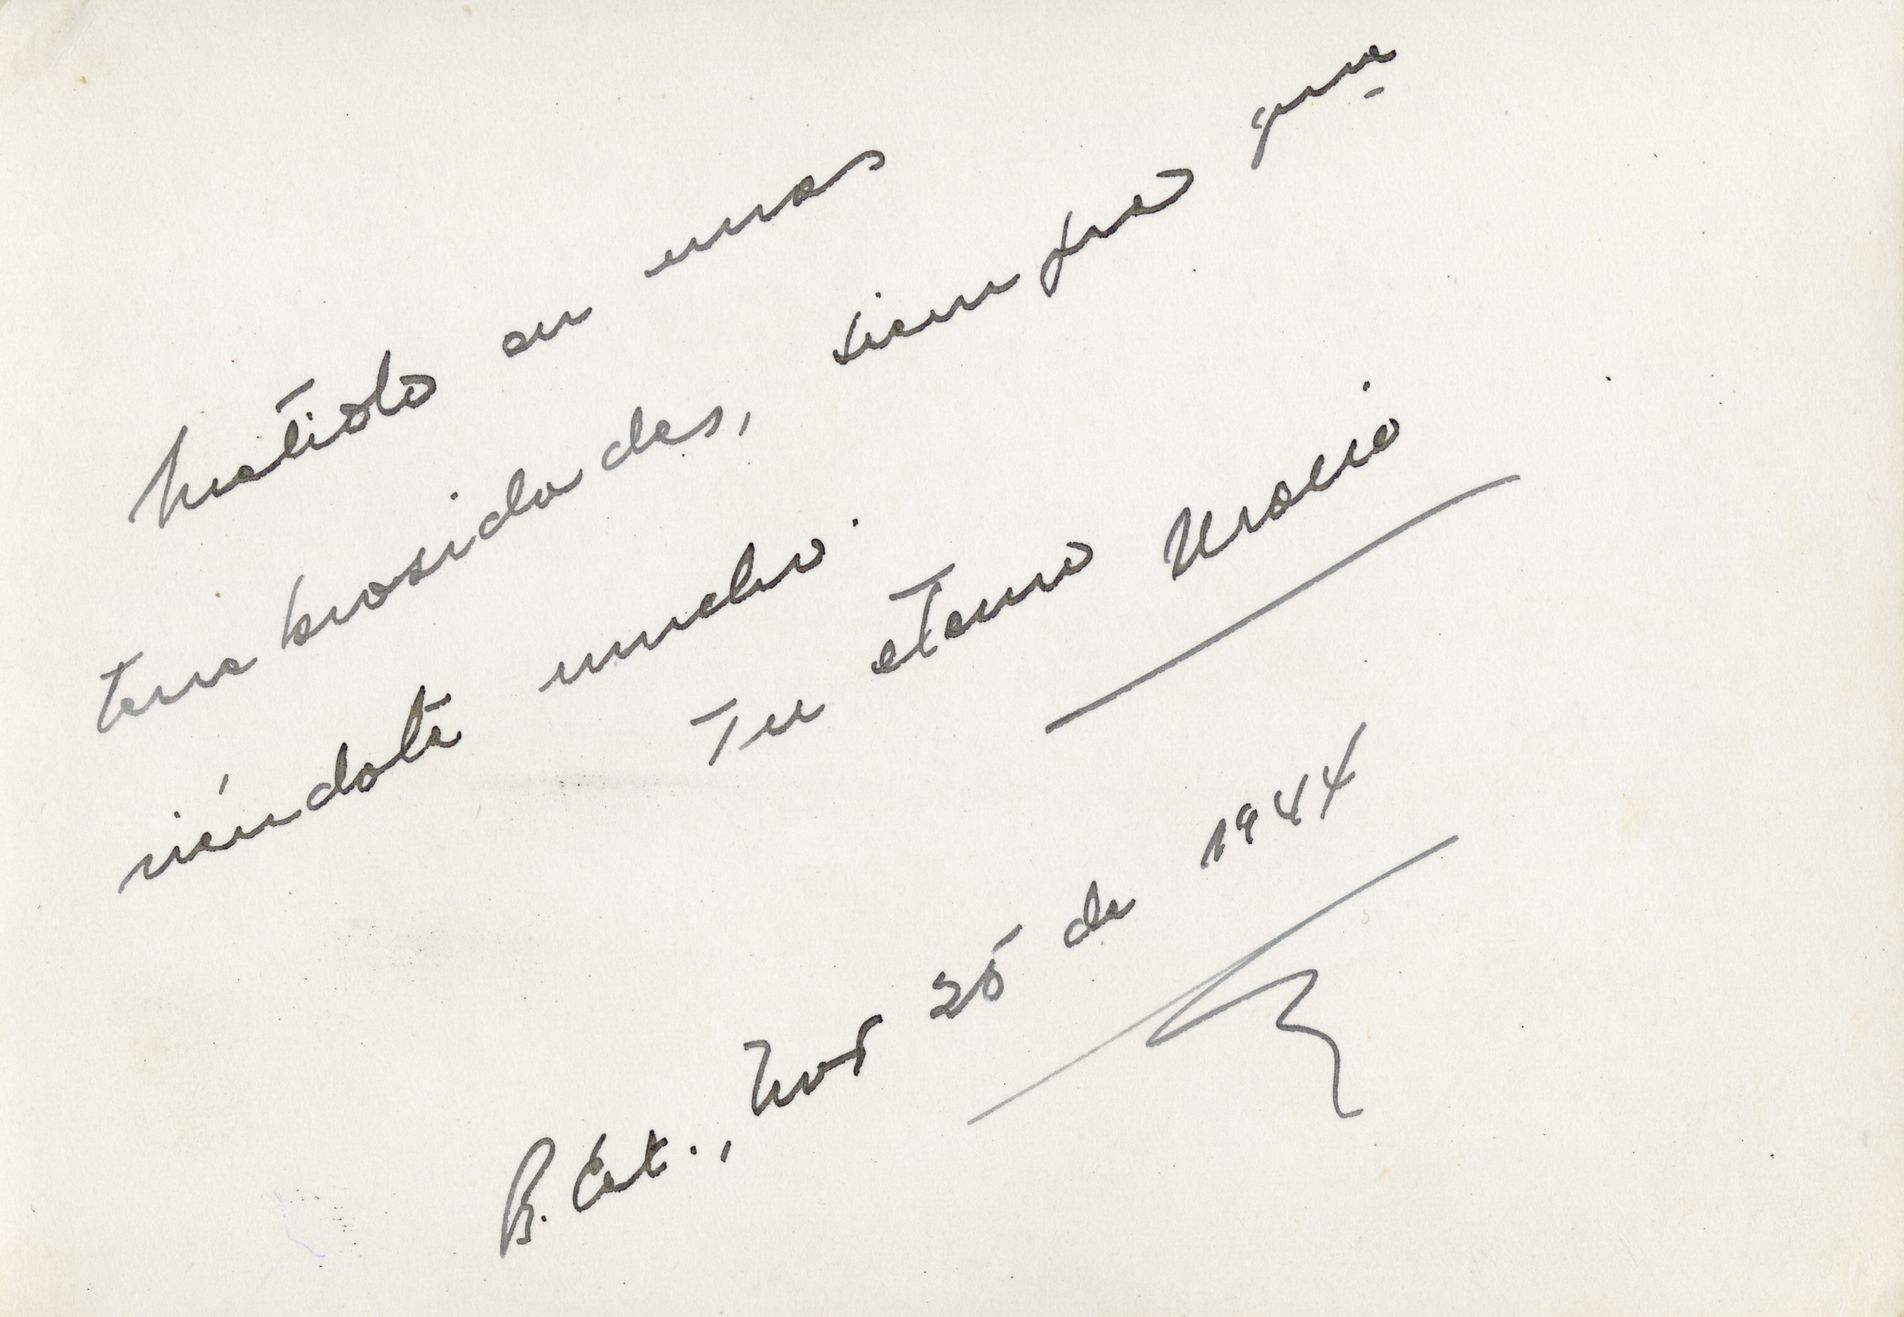 Metido en unas
tenebrosidades, siempre que
riéndote mucho.
Tu eterno Uracio
B. Cat., Nov 25 de 1944